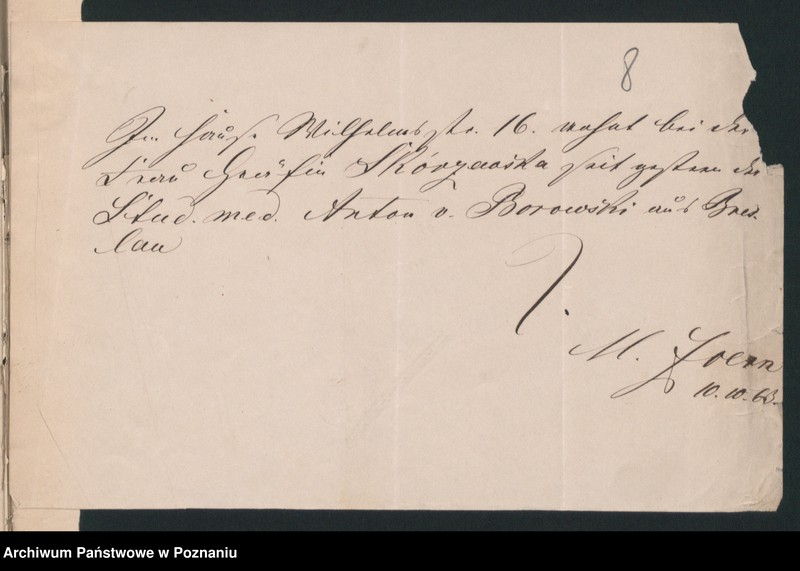 8
Im Hause Wilhelmsstr. 16. wohnt bei der
Frau Gräfin Skórzewska seit gestern der
Stud. med. Anton v. Borowski aus Bres-
lau
M.
10.10.63.
Archiwum Państwowe w Poznaniu